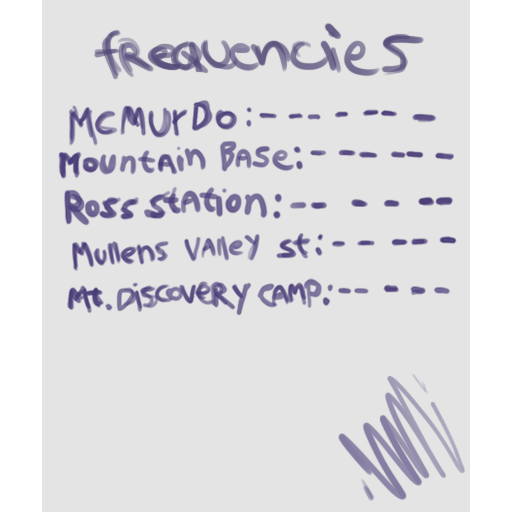 frequencies
McMurDo: - -- - -- -
Mountain Base: - -- -- -
Ross station: -- - - --
Mullens valley st: - - -- -
Mt. Discovery camp: -- - - -